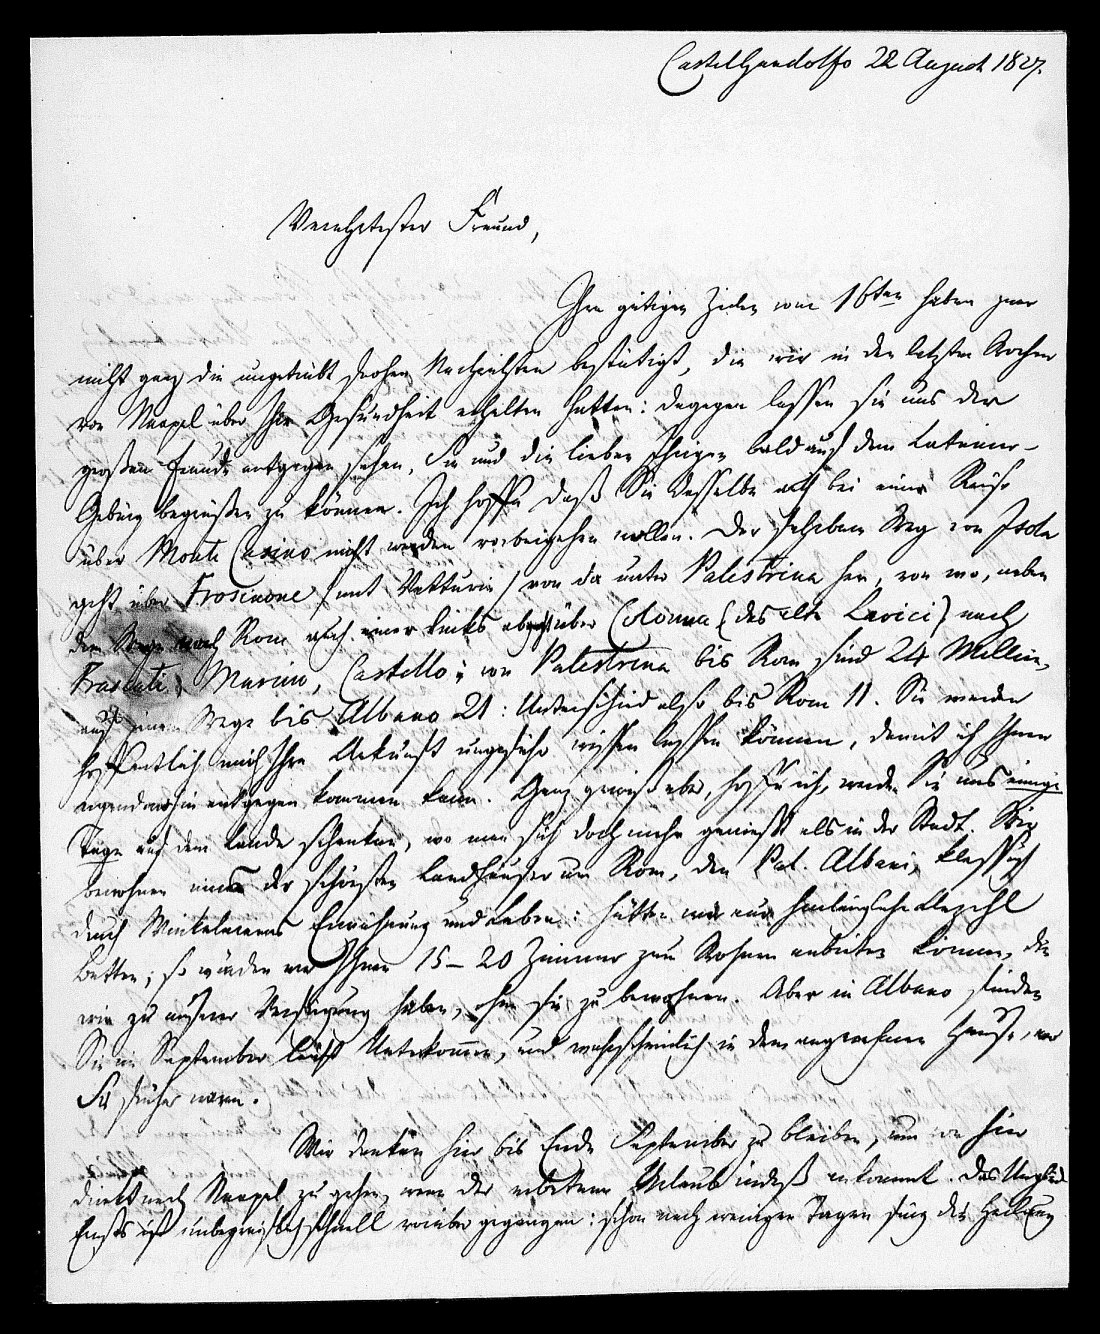 CastelGandolfo 22 August 1827.
Verehrtester Freund,
Ihre gütigen Zeilen vom 16ten haben zwar
nicht ganz die ungetrübt frohen Nachrichten bestätigt, die wir in den letzten Wochen
von Neapel über Ihre Gesundheit erhalten hatten: dagegen lassen sie uns der
großen Freude entgegen sehen, Sie und die lieben Ihrigen bald auf dem Lateiner-
Gebirg begrüßen zu können. Ich hoffe daß Sie dasselbe auch bei einer Reise
über Monte Casino nicht werden vorbeigehen wollen. Der fahrbare Weg von Isola
geht über Frosinone (mit Vetturin) von da unter Palestrina hin, von wo, neben
dem Wege nach Rom auch einer links ab über Colonna (das alte Lavici) nach
Frascati, Marino, Castello; von Palestrina bis Rom sind 24 Millien,
auf jenem Wege bis Albano 21: Unterschied also bis Rom 11. Sie werden
hoffentlich mich Ihre Ankunft ungefähr wissen lassen können, damit ich Ihnen
irgendwohin entgegen kommen kann. Ganz gewiß aber, hoffe ich, werden Sie uns einige
Tage auf dem Lande schenken, wo man sich doch mehr genießt als in der Stadt. Wir
bewohnen eines der schönsten Landhäuser um Rom, den Pal. Albani, klassisch
durch Winkelmanns Erwähnung und Leben: hätten wir nur hinlängliche Anzahl
Betten, so würden wir Ihnen 15–20 Zimmer zum Wohnen anbieten können, die
wir zu unserer Verfügung haben, ohne sie zu bewohnen. Aber in Albano finden
Sie im September leicht Unterkommen, und wahrscheinlich in dem angenehmen Hause, wo
Sie früher waren.
Wir denken hier bis Ende September zu bleiben, um von hier
direkt nach Neapel zu gehen, wenn der erbetene Urlaub indeß ankommt. Das
Ernsts ist unbegreiflich schnell vorüber gegangen: schon nach wenigen Tagen fing die Heilung